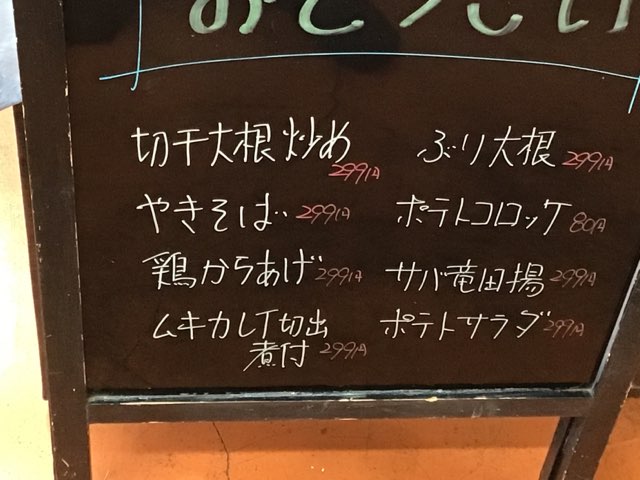 おとうしい
切干大根炒め 299円
やきそば 299円
鶏からあげ 299円
ムキカレイ切出
煮付 299円
ぶり大根 299円
ポテトコロッケ 80円
サバ竜田揚 299円
ポテトサラダ 299円